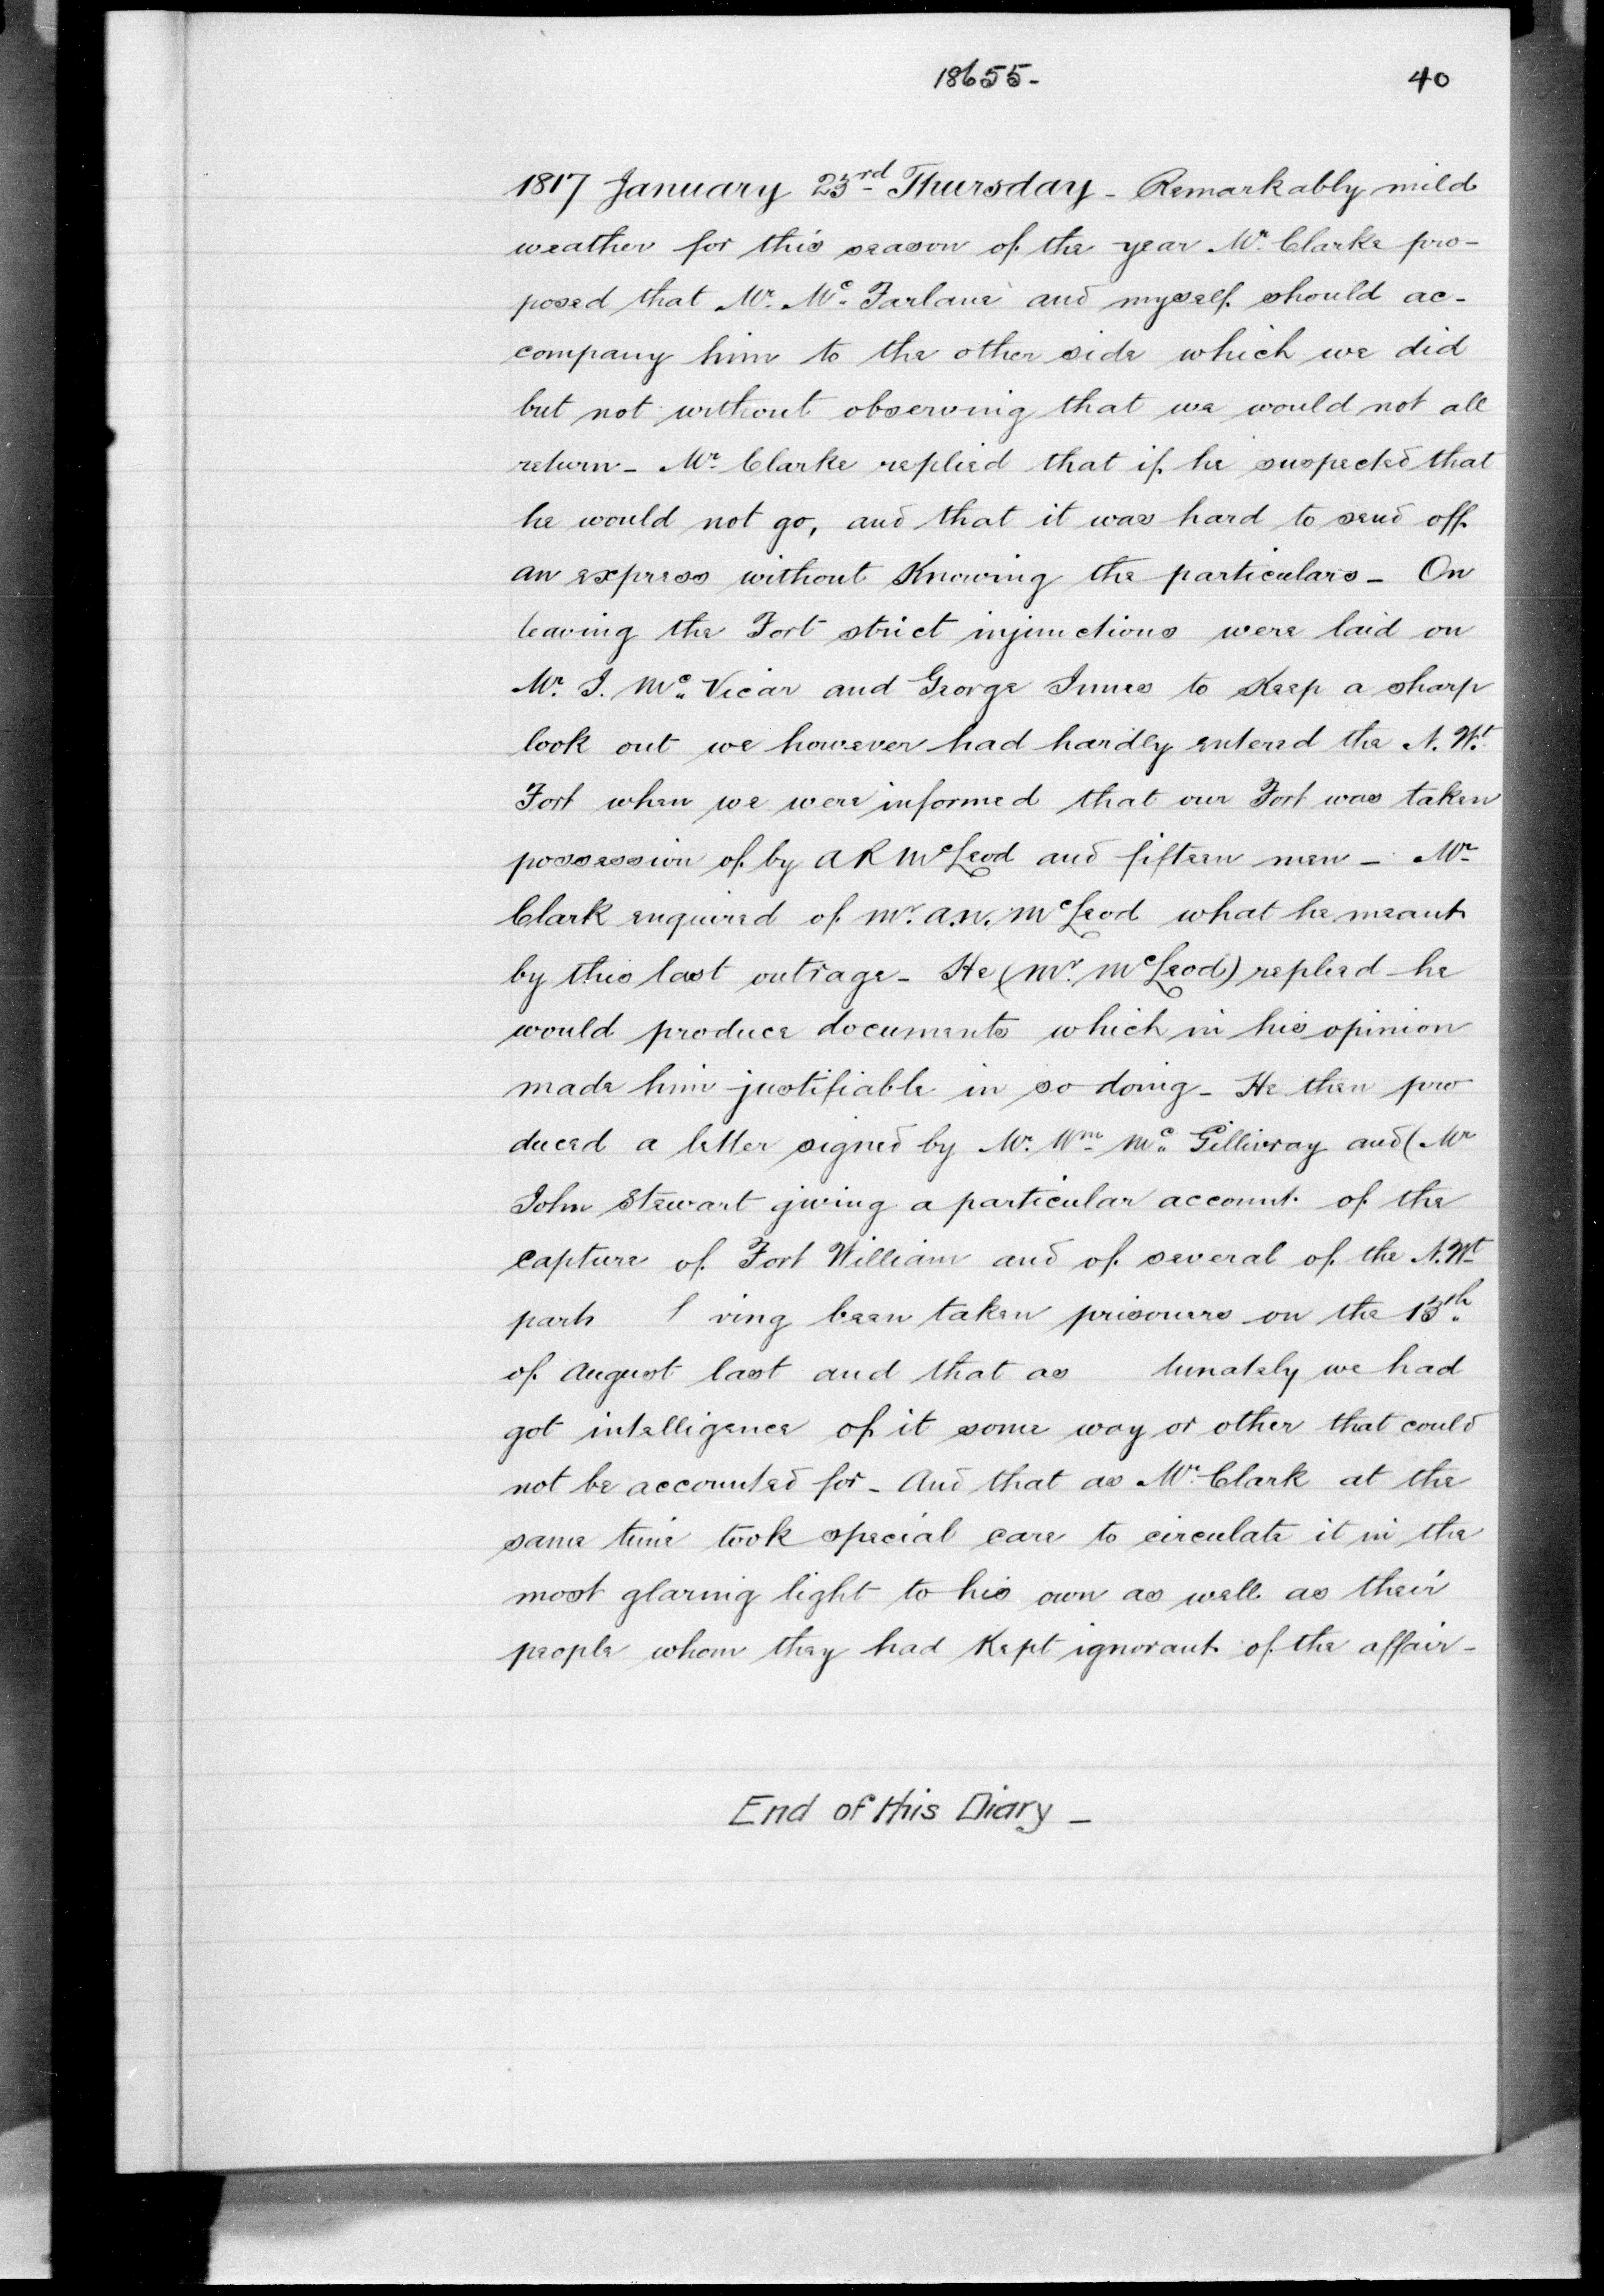 18655-
40
1817 January 23rd Thursday - Remarkably mild
weather for this season of the year Mr. Clarke pro-
posed that Mr. Mc. Farlane and myself should ac-
company him to the other side which we did
but not without observing that we would not all
return - Mr. Clarke replied that if he suspected that
he would not go, and that it was hard to send off
an express without Knowing the particulars - On
leaving the Fort strict injunctions were laid on
Mr. J. Mc. Vicar and George Innes to Keep a sharp
look out we however had hardly entered the N. Wt.
Fort when we were informed that our Fort was taken
possession of by A R McLeod and fifteen men - Mr.
Clark enquired of Mr. A.N. McLeod what he meant
by this last outrage - He (Mr. McLeod) replied he
would produce documents which in his opinion
made him justifiable in so doing - He then pro
duced a letter signed by Mr. Wm. Mc. Gillivray and (Mr
John Stewart giving a particular account of the
Capture of Fort William and of several of the N.Wt.
part ving been taken prisoners on the 13th.
of August last and that as tunately we had
got intelligence of it some way or other that could
not be accounted for - And that as Mr. Clark at the
same time took special care to circulate it in the
most glaring light to his own as well as their
people whom they had Kept ignorant of the affair -
End of this Diary -